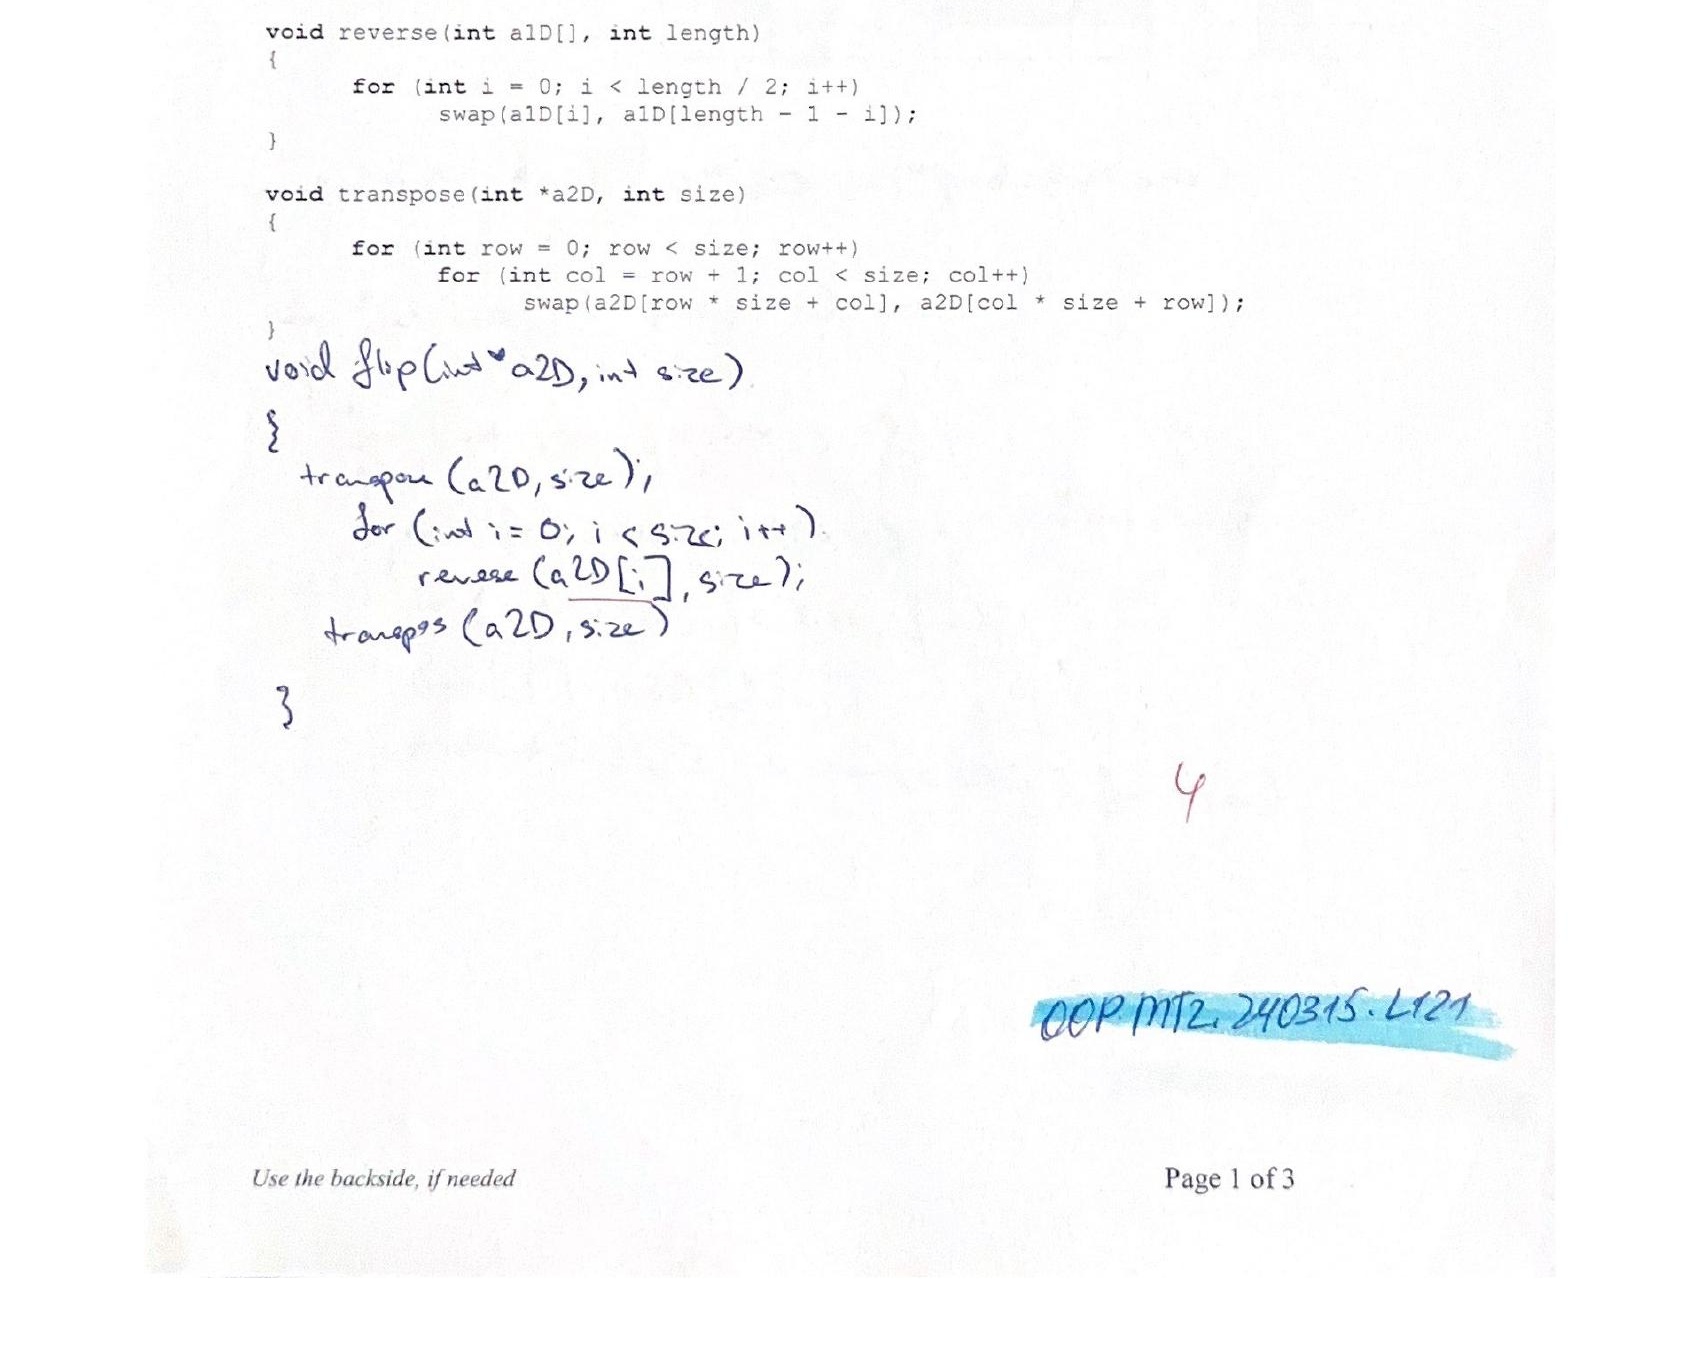 void reverse(int a1D[], int length)
{
for (int i = 0; i < length / 2; i++)
swap(a1D[i], a1D[length - 1 - i]);
}
void transpose(int *a2D, int size)
{
for (int row = 0; row < size; row++)
for (int col = row + 1; col < size; col++)
swap(a2D[row * size + col], a2D[col * size + row]);
}
void flip(int * a2D, int size)
{
transpose (a2D, size);
for (int i = 0; i < size; i++)
reverse (a2D[i], size);
transpos (a2D, size)
}
4
OOP.MT2.240315.L121
Use the backside, if needed
Page 1 of 3